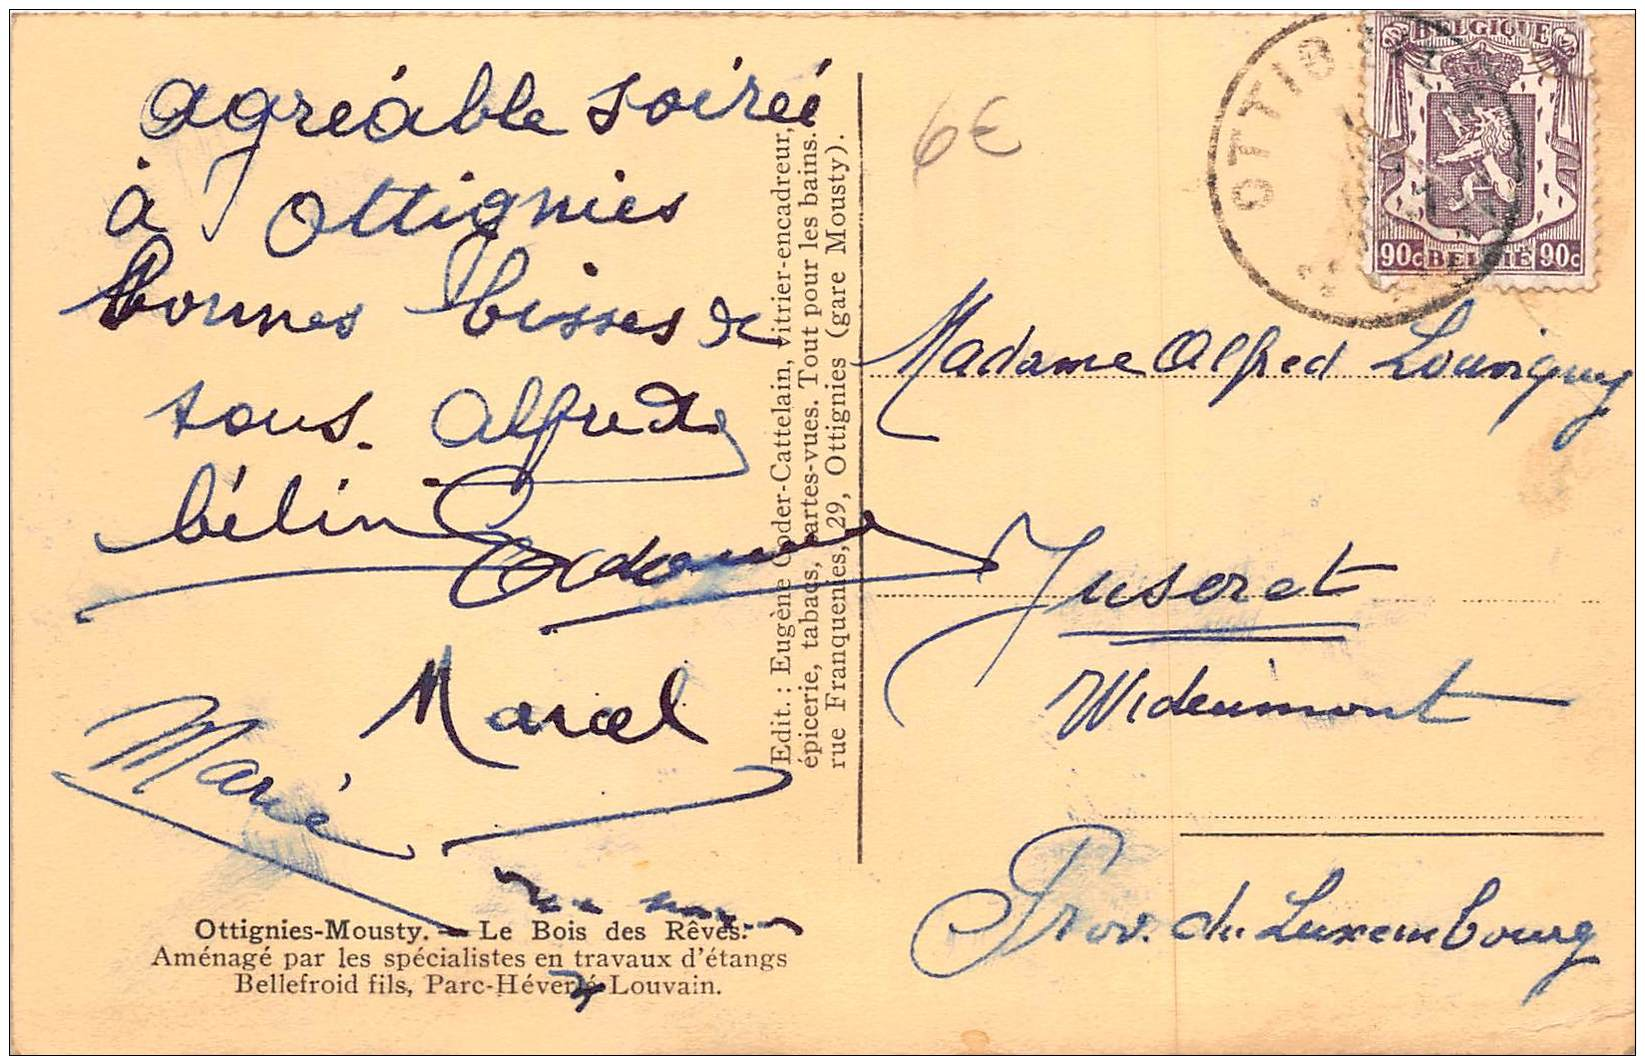 agréable soirée
à Ottignies
bonnes bisses de
tous. Alfred
bélin
Marcel
Marie
Ottignies-Mousty. — Le Bois des Rêves.
Aménagé par les spécialistes en travaux d'étangs
Bellefroid fils, Parc-Héverlé-Louvain.
Edit. : Eugène Coder-Cattelain, vitrier-encadreur,
épicerie, tabacs, cartes-vues. Tout pour les bains.
rue Franquenies, 29, Ottignies (gare Mousty).
6€
OTTIG
BELGIQUE
90c BELGIË 90c
Madame Alfred Louvigny
Juseret
Wideumont
Prov. du Luxembourg